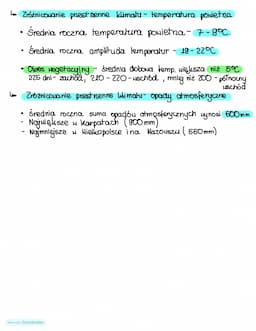 ↳ Zróżnicowanie przestrzenne klimatu - temperatura powietrza
• Średnia roczna temperatura powietrza - 7 - 8°C
• Średnia roczna amplituda temperatur - 19 - 22°C
• Okres wegetacyjny - średnia dobowa temp. większa niż 5°C
225 dni - zachód, 210 - 220 - wschód, mniej niż 200 - północny
wschód
↳ Zróżnicowanie przestrzenne klimatu - opady atmosferyczne
• Średnia roczna suma opadów atmosferycznych wynosi 600mm
- Największe w Karpatach (900mm)
- Najmniejsze w Wielkopolsce i na Mazowszu (550mm)